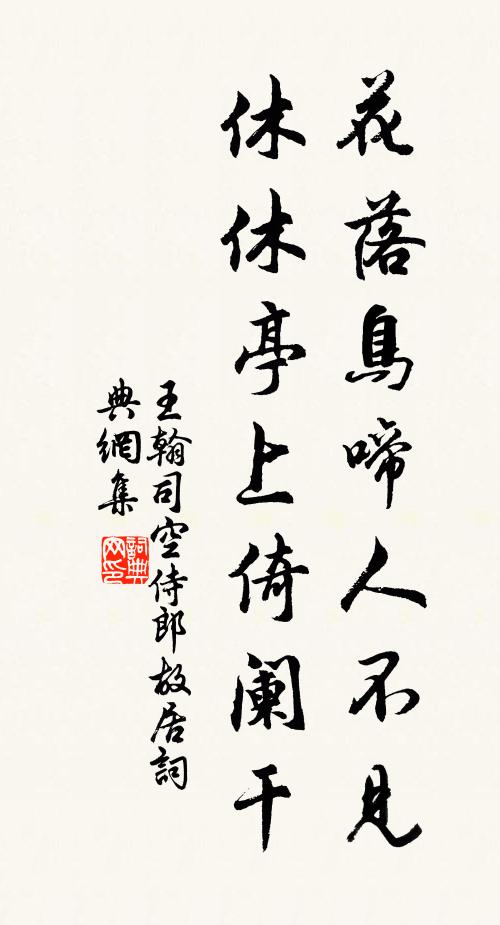 花落鳥啼人不見
休休亭上倚阑干
王翰司空侍郎故居詞
典網集
詞典
网印